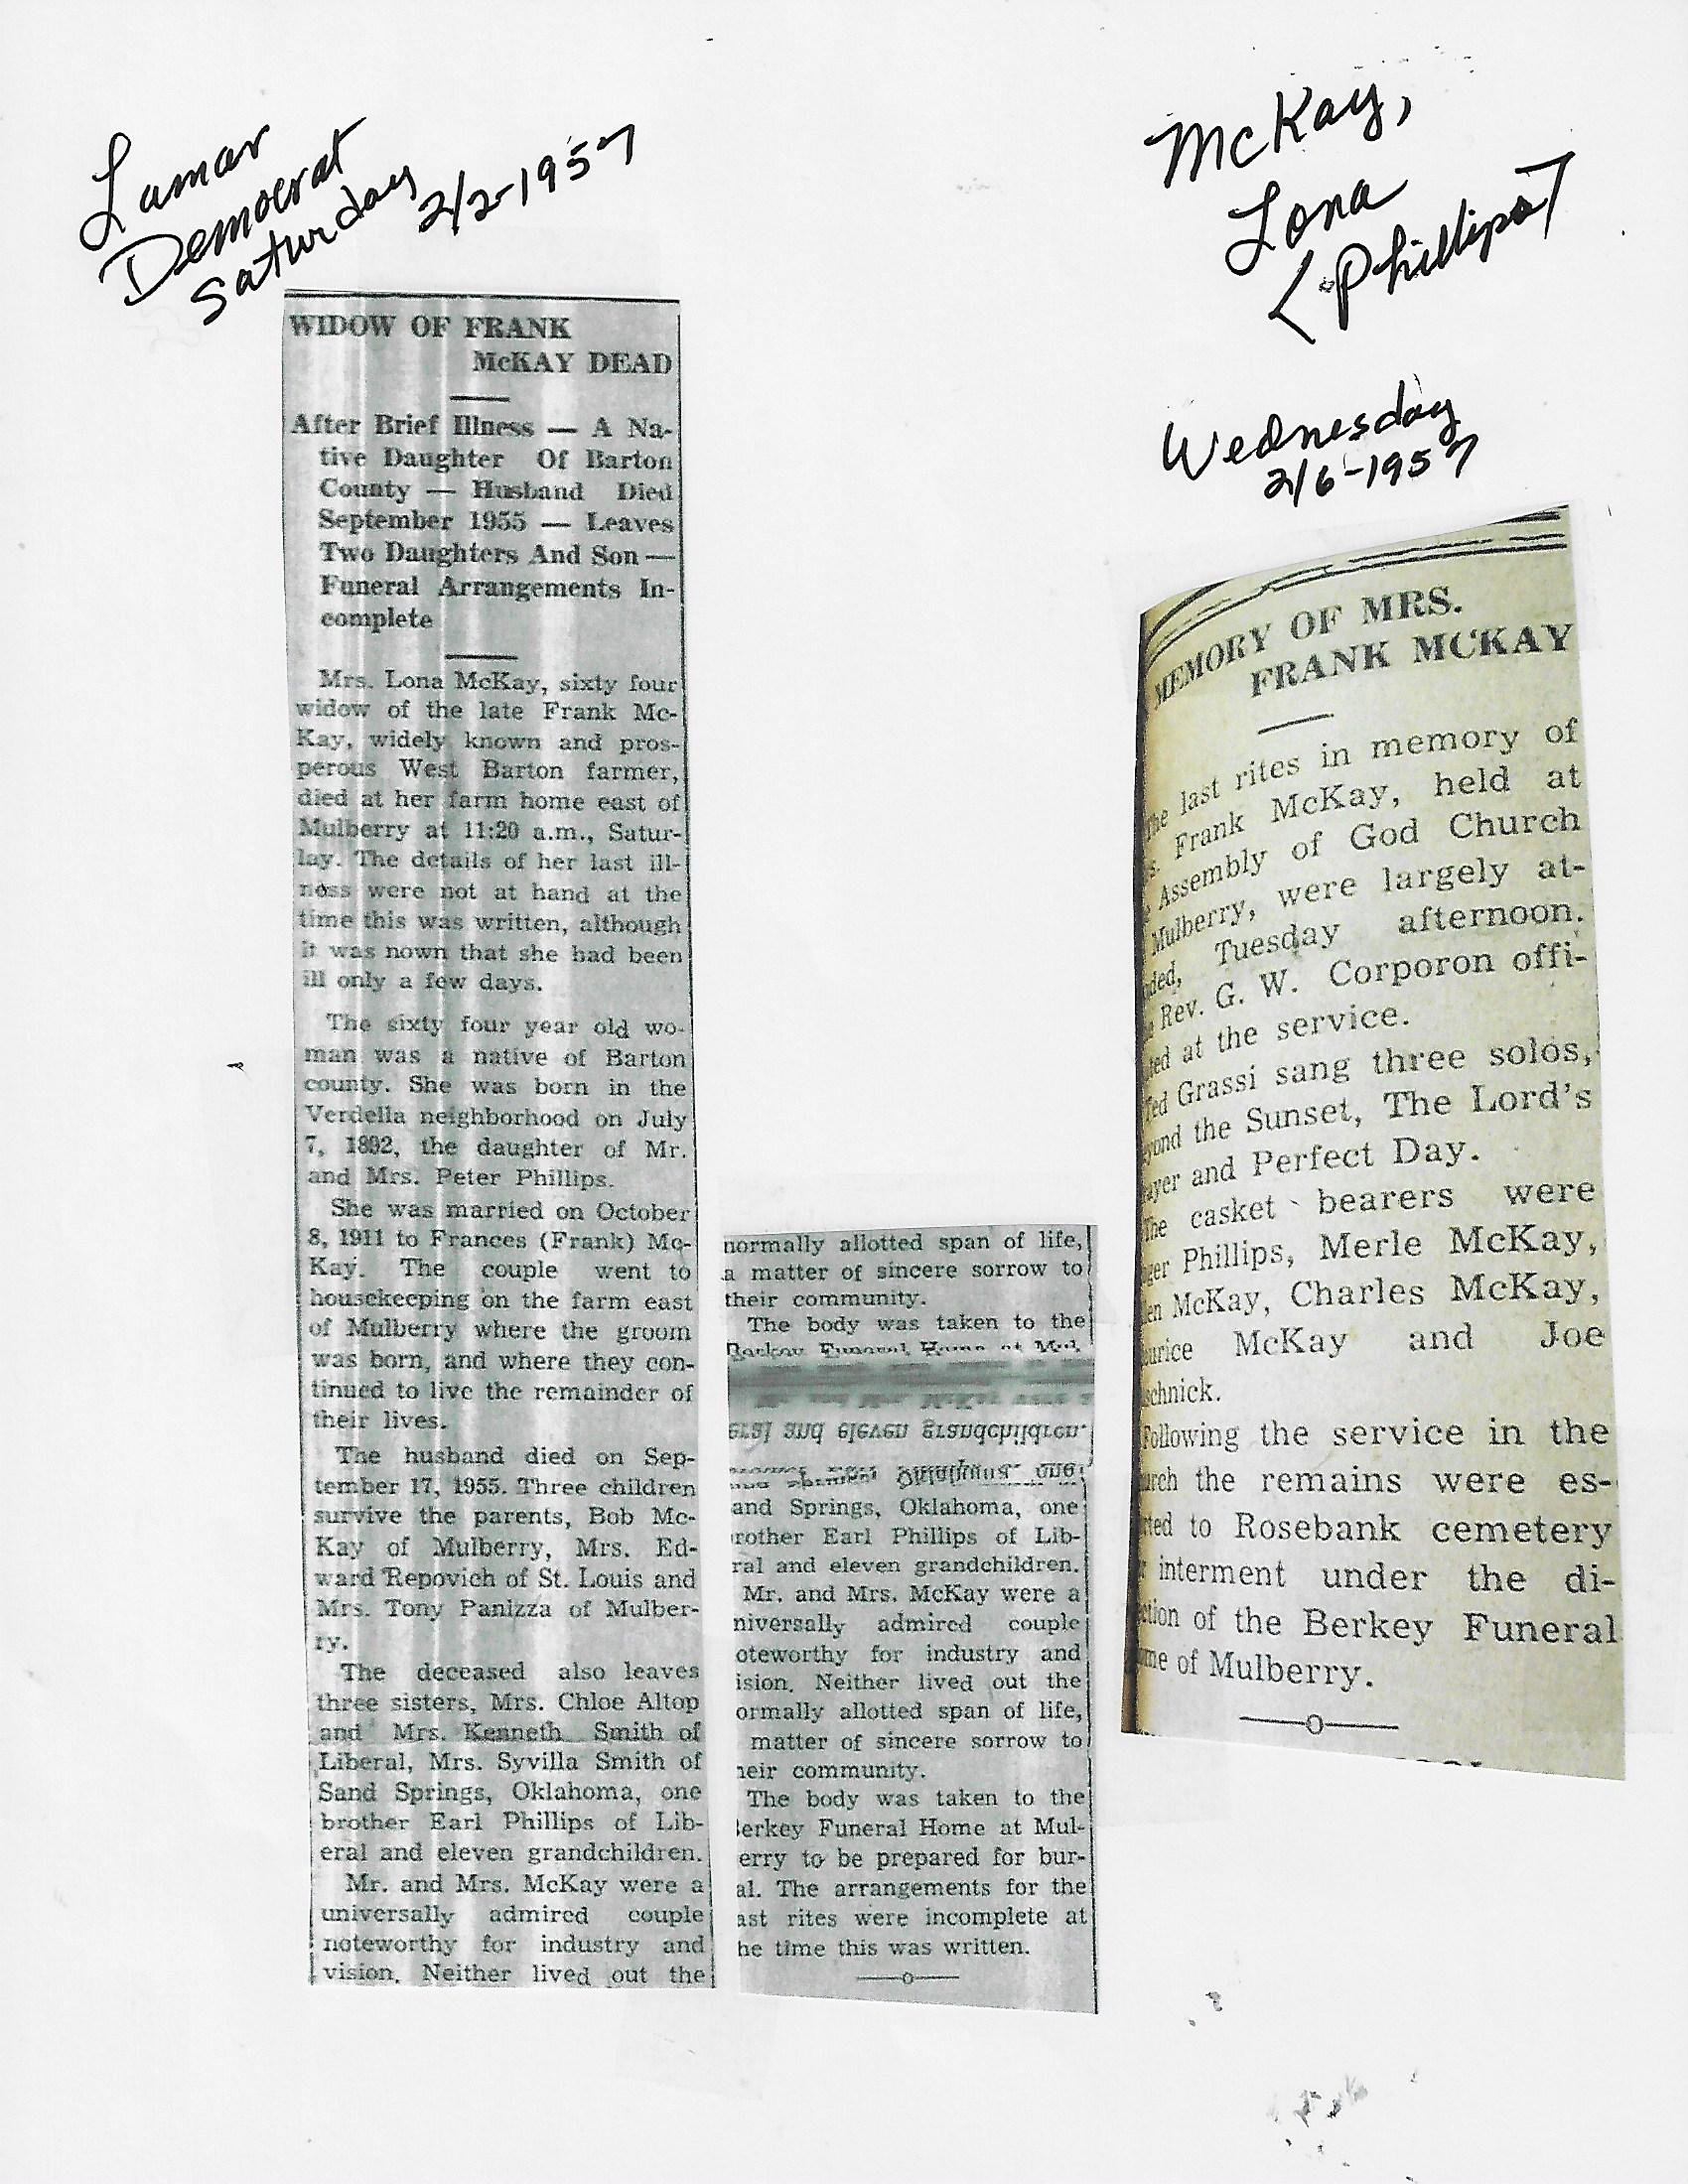 Lamar
Democrat
Saturday 2/2-1957
McKay,
Lona
<Phillips>
WIDOW OF FRANK
McKAY DEAD
After Brief Illness — A Na-
tive Daughter Of Barton
County — Husband Died
September 1955 — Leaves
Two Daughters And Son —
Funeral Arrangements In-
complete
Mrs. Lona McKay, sixty four
widow of the late Frank Mc-
Kay, widely known and pros-
perous West Barton farmer,
died at her farm home east of
Mulberry at 11:20 a.m., Satur-
lay. The details of her last ill-
ness were not at hand at the
time this was written, although
it was nown that she had been
ill only a few days.
The sixty four year old wo-
man was a native of Barton
county. She was born in the
Verdella neighborhood on July
7, 1892, the daughter of Mr.
and Mrs. Peter Phillips.
She was married on October
8, 1911 to Frances (Frank) Mc-
Kay. The couple went to
housekeeping on the farm east
of Mulberry where the groom
was born, and where they con-
tinued to live the remainder of
their lives.
The husband died on Sep-
tember 17, 1955. Three children
survive the parents, Bob Mc-
Kay of Mulberry, Mrs. Ed-
ward Repovich of St. Louis and
Mrs. Tony Panizza of Mulber-
ry.
The deceased also leaves
three sisters, Mrs. Chloe Altop
and Mrs. Kenneth Smith of
Liberal, Mrs. Syvilla Smith of
Sand Springs, Oklahoma, one
brother Earl Phillips of Lib-
eral and eleven grandchildren.
Mr. and Mrs. McKay were a
universally admired couple
noteworthy for industry and
vision. Neither lived out the
normally allotted span of life,
a matter of sincere sorrow to
their community.
The body was taken to the
Berkey Funeral Home at Mul-
eral and eleven grandchildren.
and Springs, Oklahoma, one
rother Earl Phillips of Lib-
ral and eleven grandchildren.
Mr. and Mrs. McKay were a
niversally admired couple
oteworthy for industry and
ision. Neither lived out the
ormally allotted span of life,
matter of sincere sorrow to
heir community.
The body was taken to the
erkey Funeral Home at Mul-
erry to be prepared for bur-
al. The arrangements for the
ast rites were incomplete at
he time this was written.
Wednesday
2/6-1957
MEMORY OF MRS.
FRANK MCKAY
he last rites in memory of
s. Frank McKay, held at
Assembly of God Church
Mulberry, were largely at-
ded, Tuesday afternoon.
e Rev. G. W. Corporon offi-
ted at the service.
Ted Grassi sang three solos,
yond the Sunset, The Lord's
ayer and Perfect Day.
The casket bearers were
ger Phillips, Merle McKay,
en McKay, Charles McKay,
urice McKay and Joe
schnick.
Following the service in the
urch the remains were es-
rted to Rosebank cemetery
r interment under the di-
ction of the Berkey Funeral
me of Mulberry.